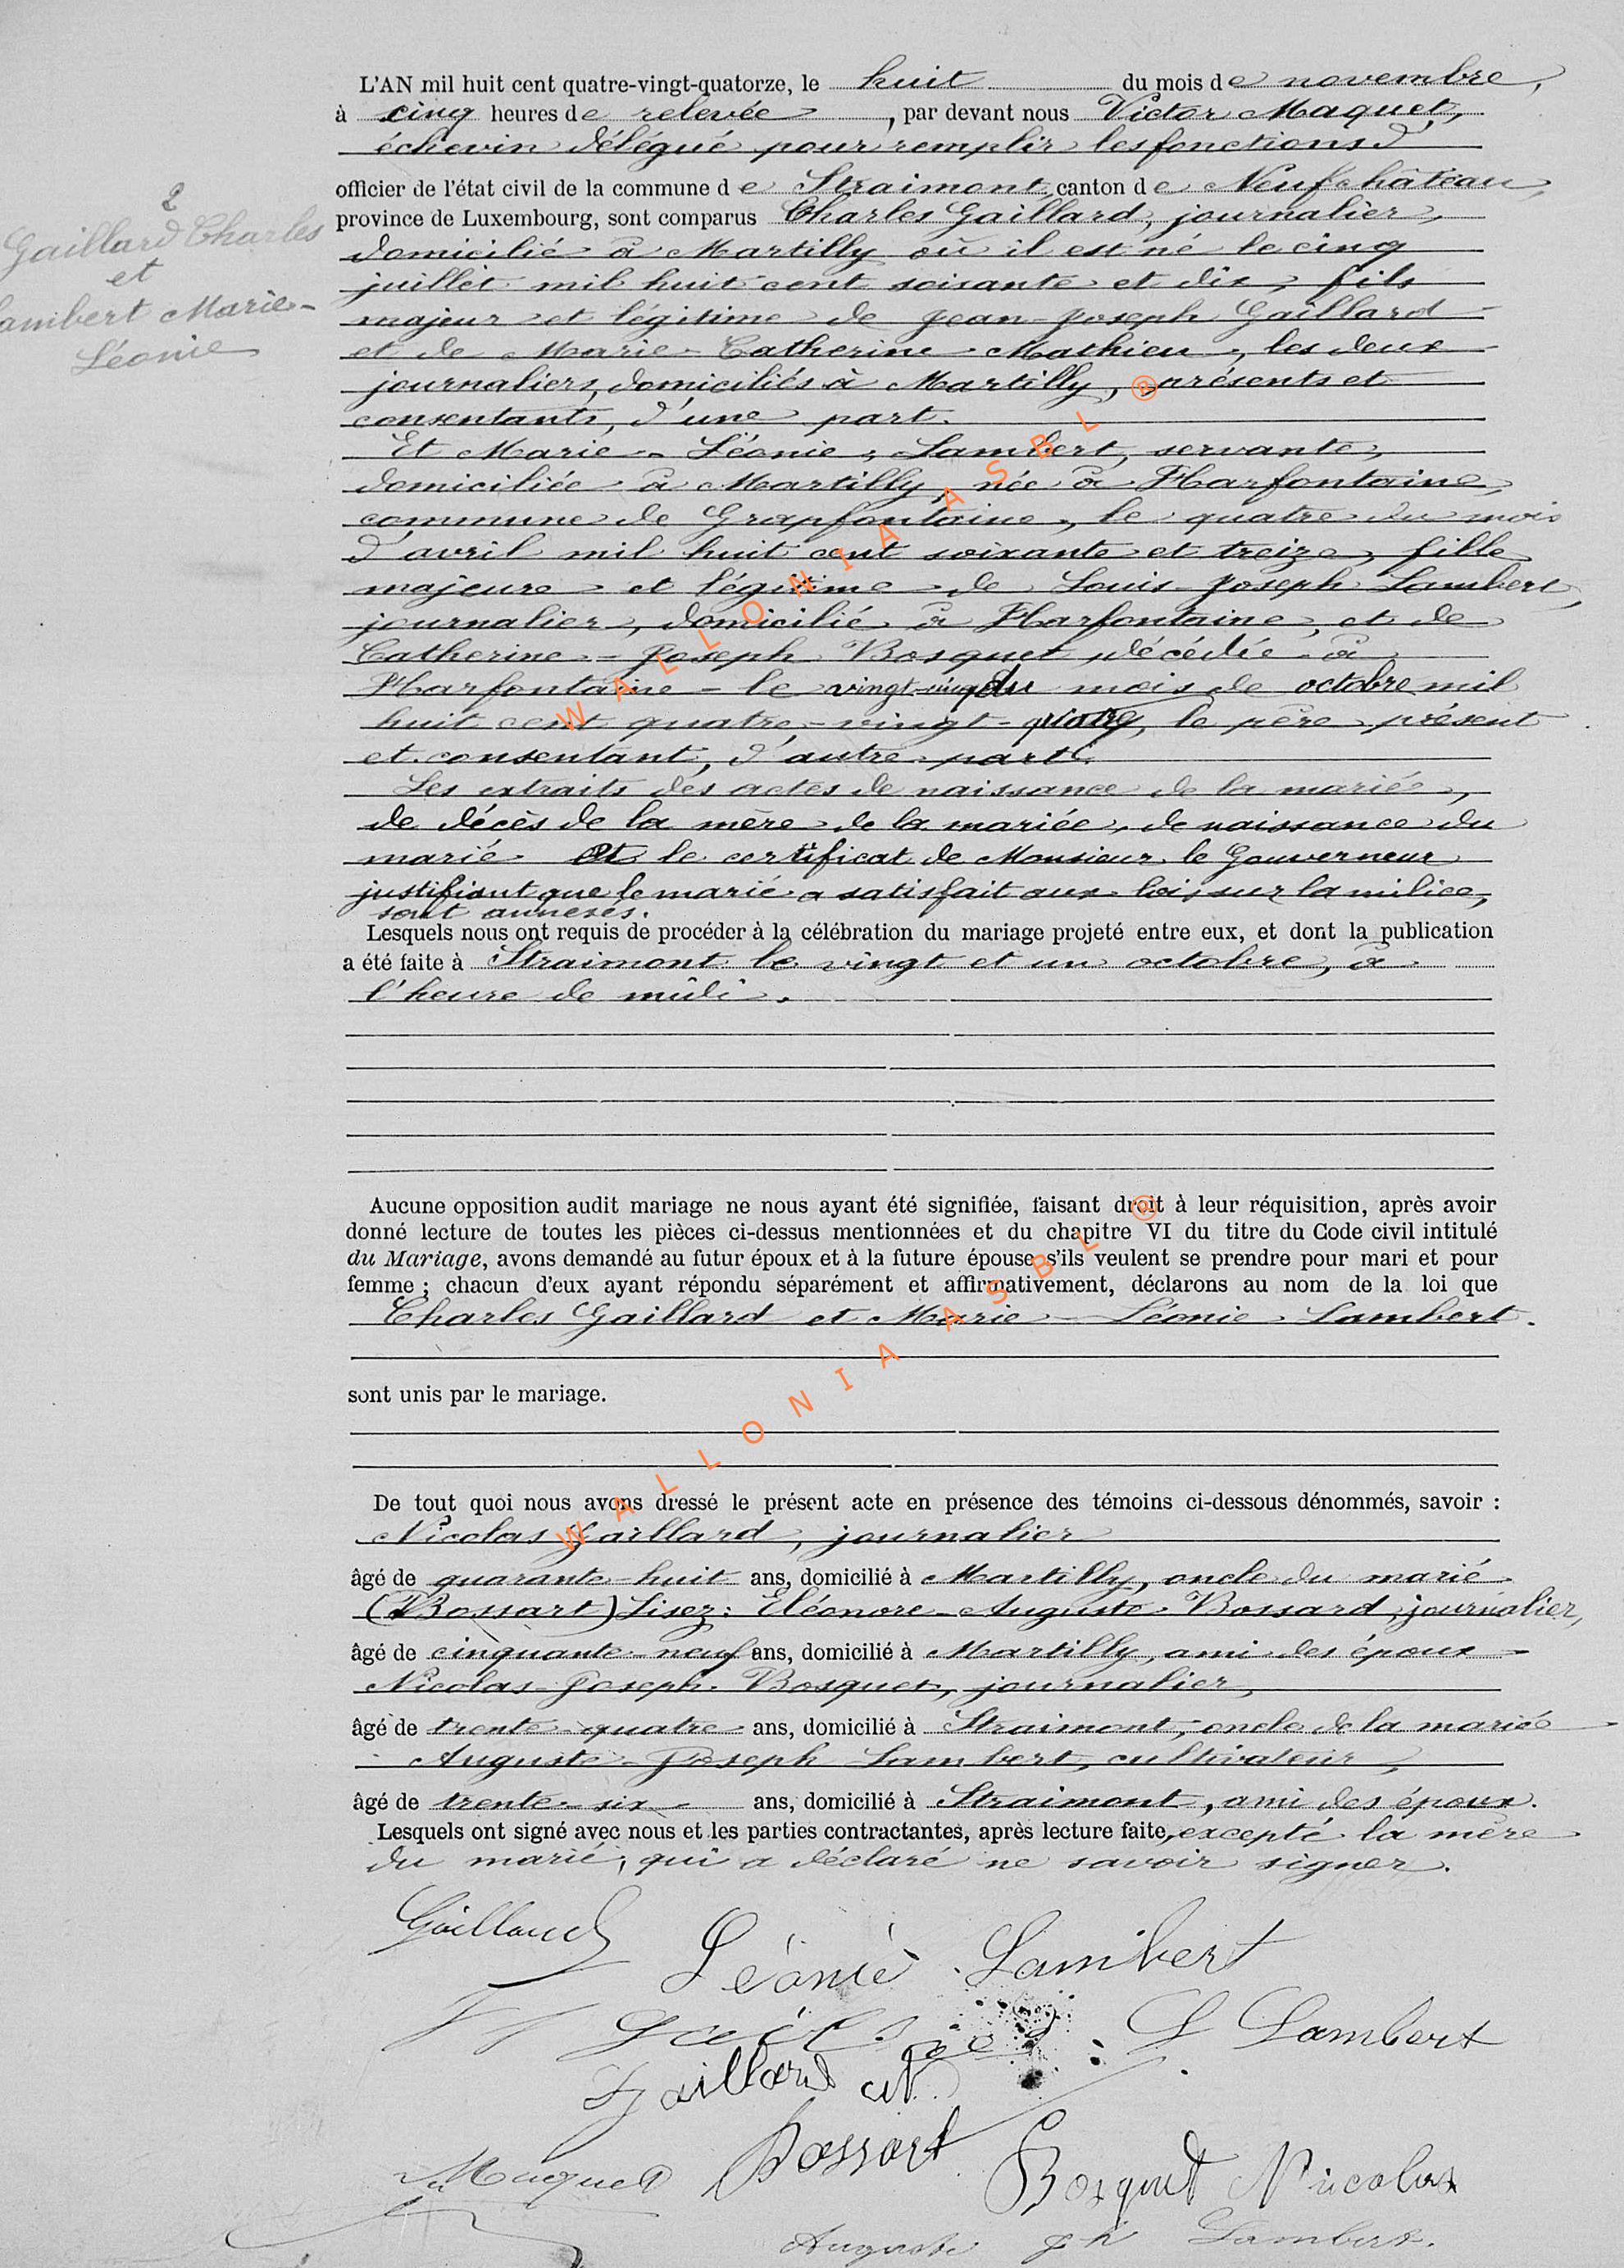 L'AN mil huit cent quatre-vingt-quatorze, le huit du mois de novembre,
à cinq heures de relevée, par devant nous Victor Maquet,
échevin délégué pour remplir les fonctions d'
officier de l'état civil de la commune de Straimont, canton de Neufchâteau,
province de Luxembourg, sont comparus Charles Gaillard, journalier,
domicilié à Martilly où il est né le cinq
juillet mil huit cent soixante et dix, fils
majeur et légitime de Jean-Joseph Gaillard
et de Marie-Catherine Mathieu, les deux
journaliers, domiciliés à Martilly, présents et
consentants, d'une part.
Et Marie-Léonie Lambert, servante,
domiciliée à Martilly, née à Harfontaine,
commune de Grapfontaine, le quatre du mois
d'avril mil huit cent soixante et treize, fille
majeure et légitime de Louis-Joseph Lambert,
journalier, domicilié à Harfontaine, et de
Catherine-Joseph Bosquet, décédée à
Harfontaine - le vingt-cinq du mois de octobre mil
huit cent quatre-vingt-quatre, le père présent
et consentant, d'autre part.
Les extraits des actes de naissance de la mariée,
de décès de la mère de la mariée, de naissance du
marié et le certificat de Monsieur le Gouverneur
justifiant que le marié a satisfait aux lois sur la milice,
sont annexés.
Lesquels nous ont requis de procéder à la célébration du mariage projeté entre eux, et dont la publication
a été faite à Straimont le vingt et un octobre, à
l'heure de midi.
Aucune opposition audit mariage ne nous ayant été signifiée, faisant droit à leur réquisition, après avoir
donné lecture de toutes les pièces ci-dessus mentionnées et du chapitre VI du titre du Code civil intitulé
du Mariage, avons demandé au futur époux et à la future épouse s'ils veulent se prendre pour mari et pour
femme ; chacun d'eux ayant répondu séparément et affirmativement, déclarons au nom de la loi que
Charles Gaillard et Marie-Léonie Lambert.
sont unis par le mariage.
De tout quoi nous avons dressé le présent acte en présence des témoins ci-dessous dénommés, savoir :
Nicolas Gaillard, journalier
âgé de quarante-huit ans, domicilié à Martilly, oncle du marié
(Bossart) Lisez: Eléonore-Auguste Bossard, journalier,
âgé de cinquante-neuf ans, domicilié à Martilly, ami des époux
Nicolas-Joseph Bosquet, journalier,
âgé de trente-quatre ans, domicilié à Straimont, oncle de la mariée
Auguste-Joseph Lambert, cultivateur,
âgé de trente-six ans, domicilié à Straimont, ami des époux.
Lesquels ont signé avec nous et les parties contractantes, après lecture faite, excepté la mère
du marié, qui a déclaré ne savoir signer.
2
Gaillard Charles
et
Lambert Marie-
Léonie
Gaillard
Léonie Lambert
L Lambert
Gaillard
Bossart
Maquet
Bosquet Nicolas
Auguste jh Lambert.
WALLONIA ASBL ®
WALLONIA ASBL ®